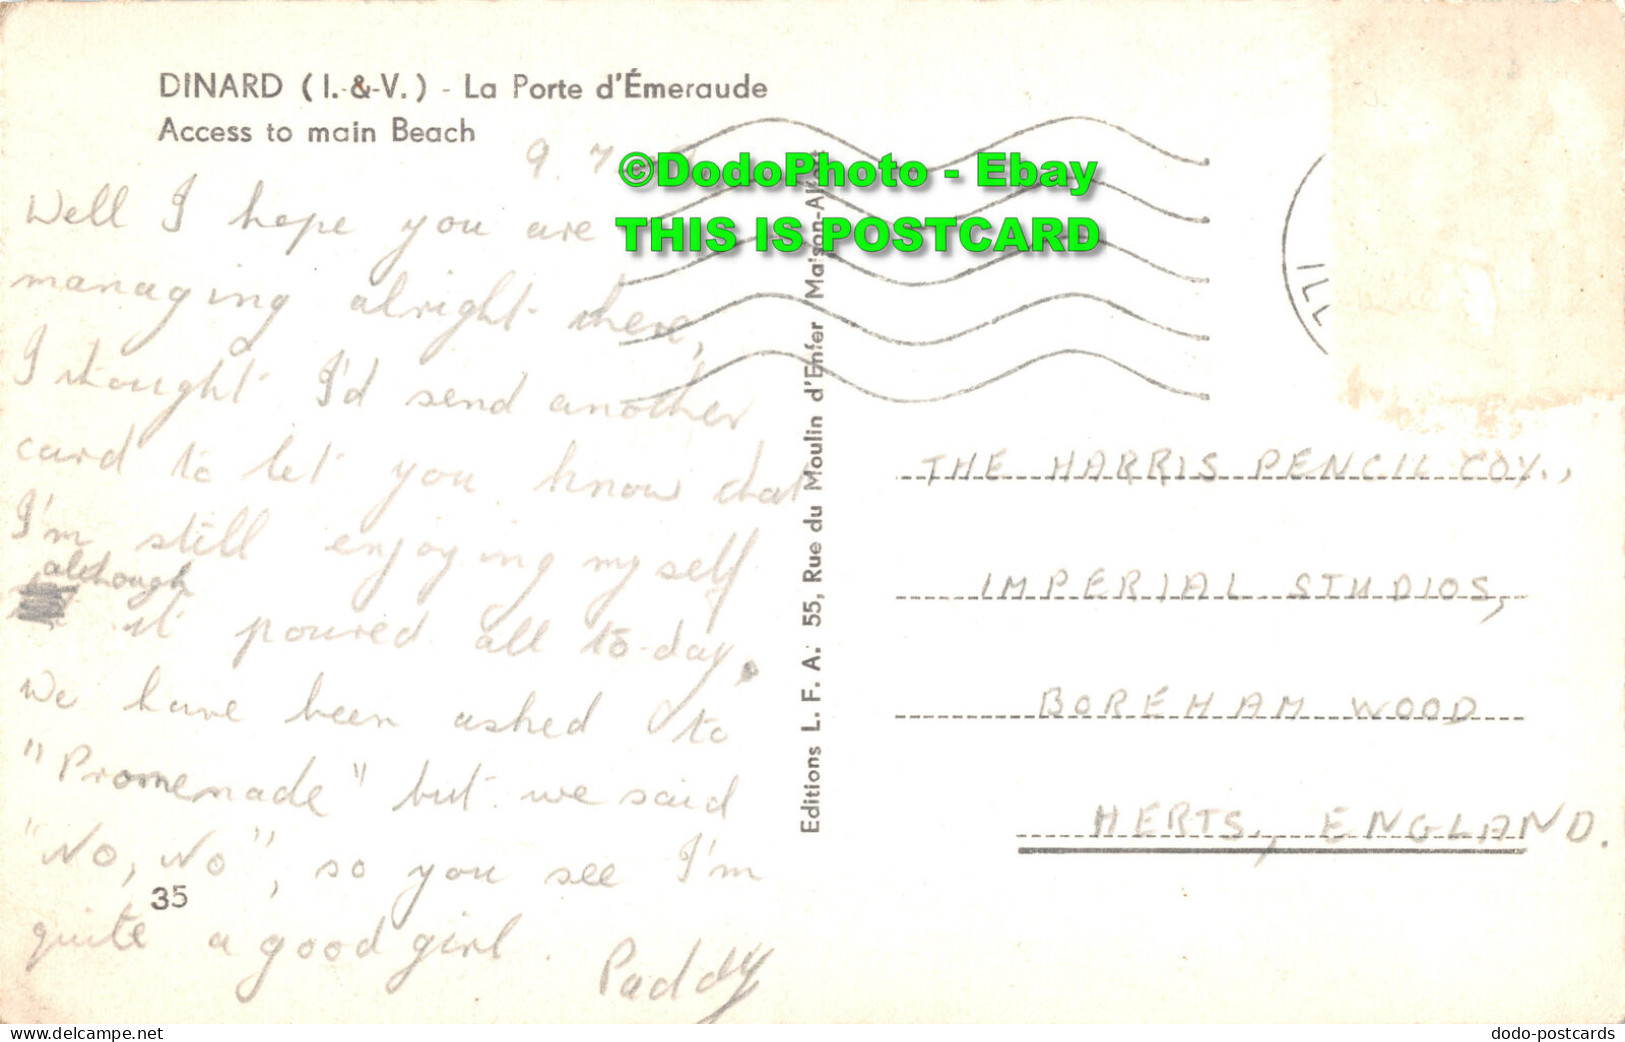 DINARD (I.-&-V.) - La Porte d'Émeraude
Access to main Beach
9. 7.
©DodoPhoto - Ebay
THIS IS POSTCARD
Well I hope you are
managing alright there,
I thought I'd send another
card to let you know that
I'm still enjoying myself
although
it poured all to-day.
We have been asked to
"Promenade" but we said
"No, No", so you see I'm
35
quite a good girl.
Paddy
Editions L. F. A. 55, Rue du Moulin d'Enfer Maison-Alfort
ILL
THE HARRIS PENCIL COY.,
IMPERIAL STUDIOS,
BOREHAM WOOD
HERTS, ENGLAND.
www.delcampe.net
dodo-postcards